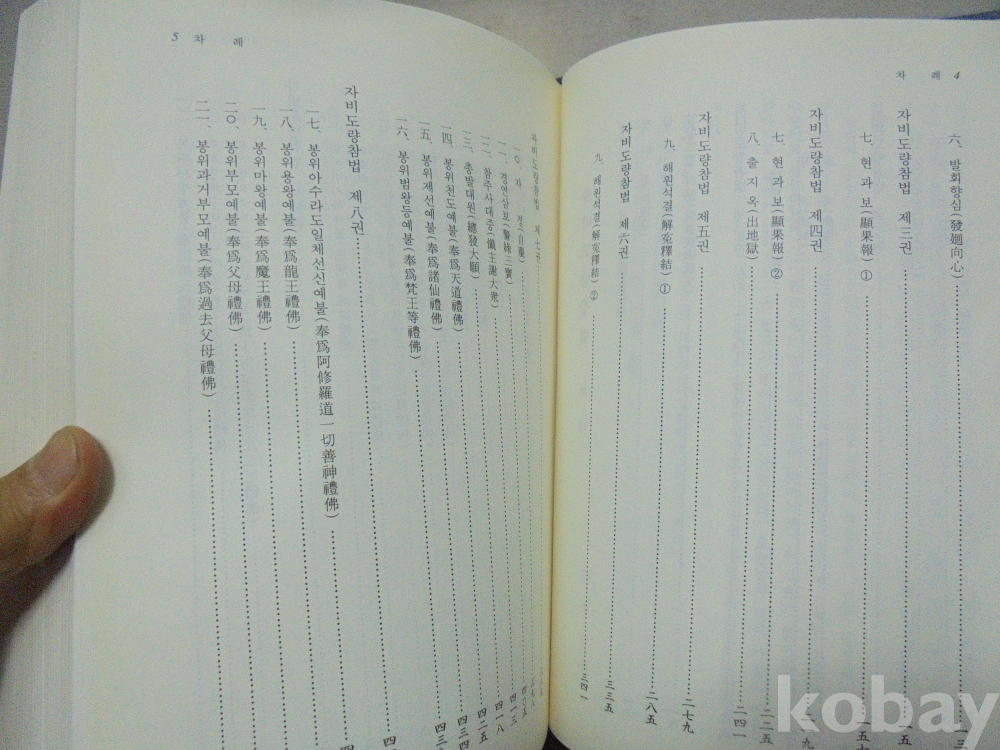 차 례 4
六、발회향심(發廻向心)
자비도량참법 제三권
七、현 과 보(顯果報) ①
자비도량참법 제四권
七、현 과 보(顯果報) ②
八、출 지 옥(出地獄) 二四一
자비도량참법 제五권 二七九
九、해원석결(解寃釋結) ① 二八五
자비도량참법 제六권 三三五
九、해원석결(解寃釋結) ② 三四一
5 차 례
자비도량참법 제七권
一○、자 경(自慶)
一一、경연삼보(警緣三寶)
一二、참주사대중(懺主謝大衆) 四一八
一三、총발대원(總發大願) 四二五
一四、봉위천도예불(奉爲天道禮佛)
一五、봉위제선예불(奉爲諸仙禮佛)
一六、봉위범왕등예불(奉爲梵王等禮佛)
자비도량참법 제八권
一七、봉위아수라도일체선신예불(奉爲阿修羅道一切善神禮佛)
一八、봉위용왕예불(奉爲龍王禮佛)
一九、봉위마왕예불(奉爲魔王禮佛)
二○、봉위부모예불(奉爲父母禮佛)
二一、봉위과거부모예불(奉爲過去父母禮佛)
kobay